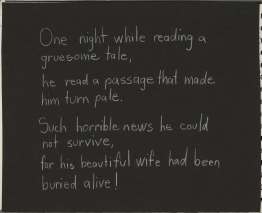 One night while reading a
gruesome tale,
he read a passage that made
him turn pale.
Such horrible news he could
not survive,
for his beautiful wife had been
buried alive!